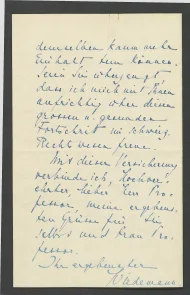 demselben kaum mehr
Einhalt thun können.
Seien Sie überzeugt
dass ich mich mit Ihnen
aufrichtig über diesen
grossen u. gesunden
Fortschritt im schweiz.
Rechtswesen freue.
Mit dieser Versicherung
verbinde ich, Hochver-
ehrter lieber Herr Pro-
fessor, meine ergeben-
sten Grüsse für Sie
selbst und Frau Pro-
fessor.
Ihr ergebenster